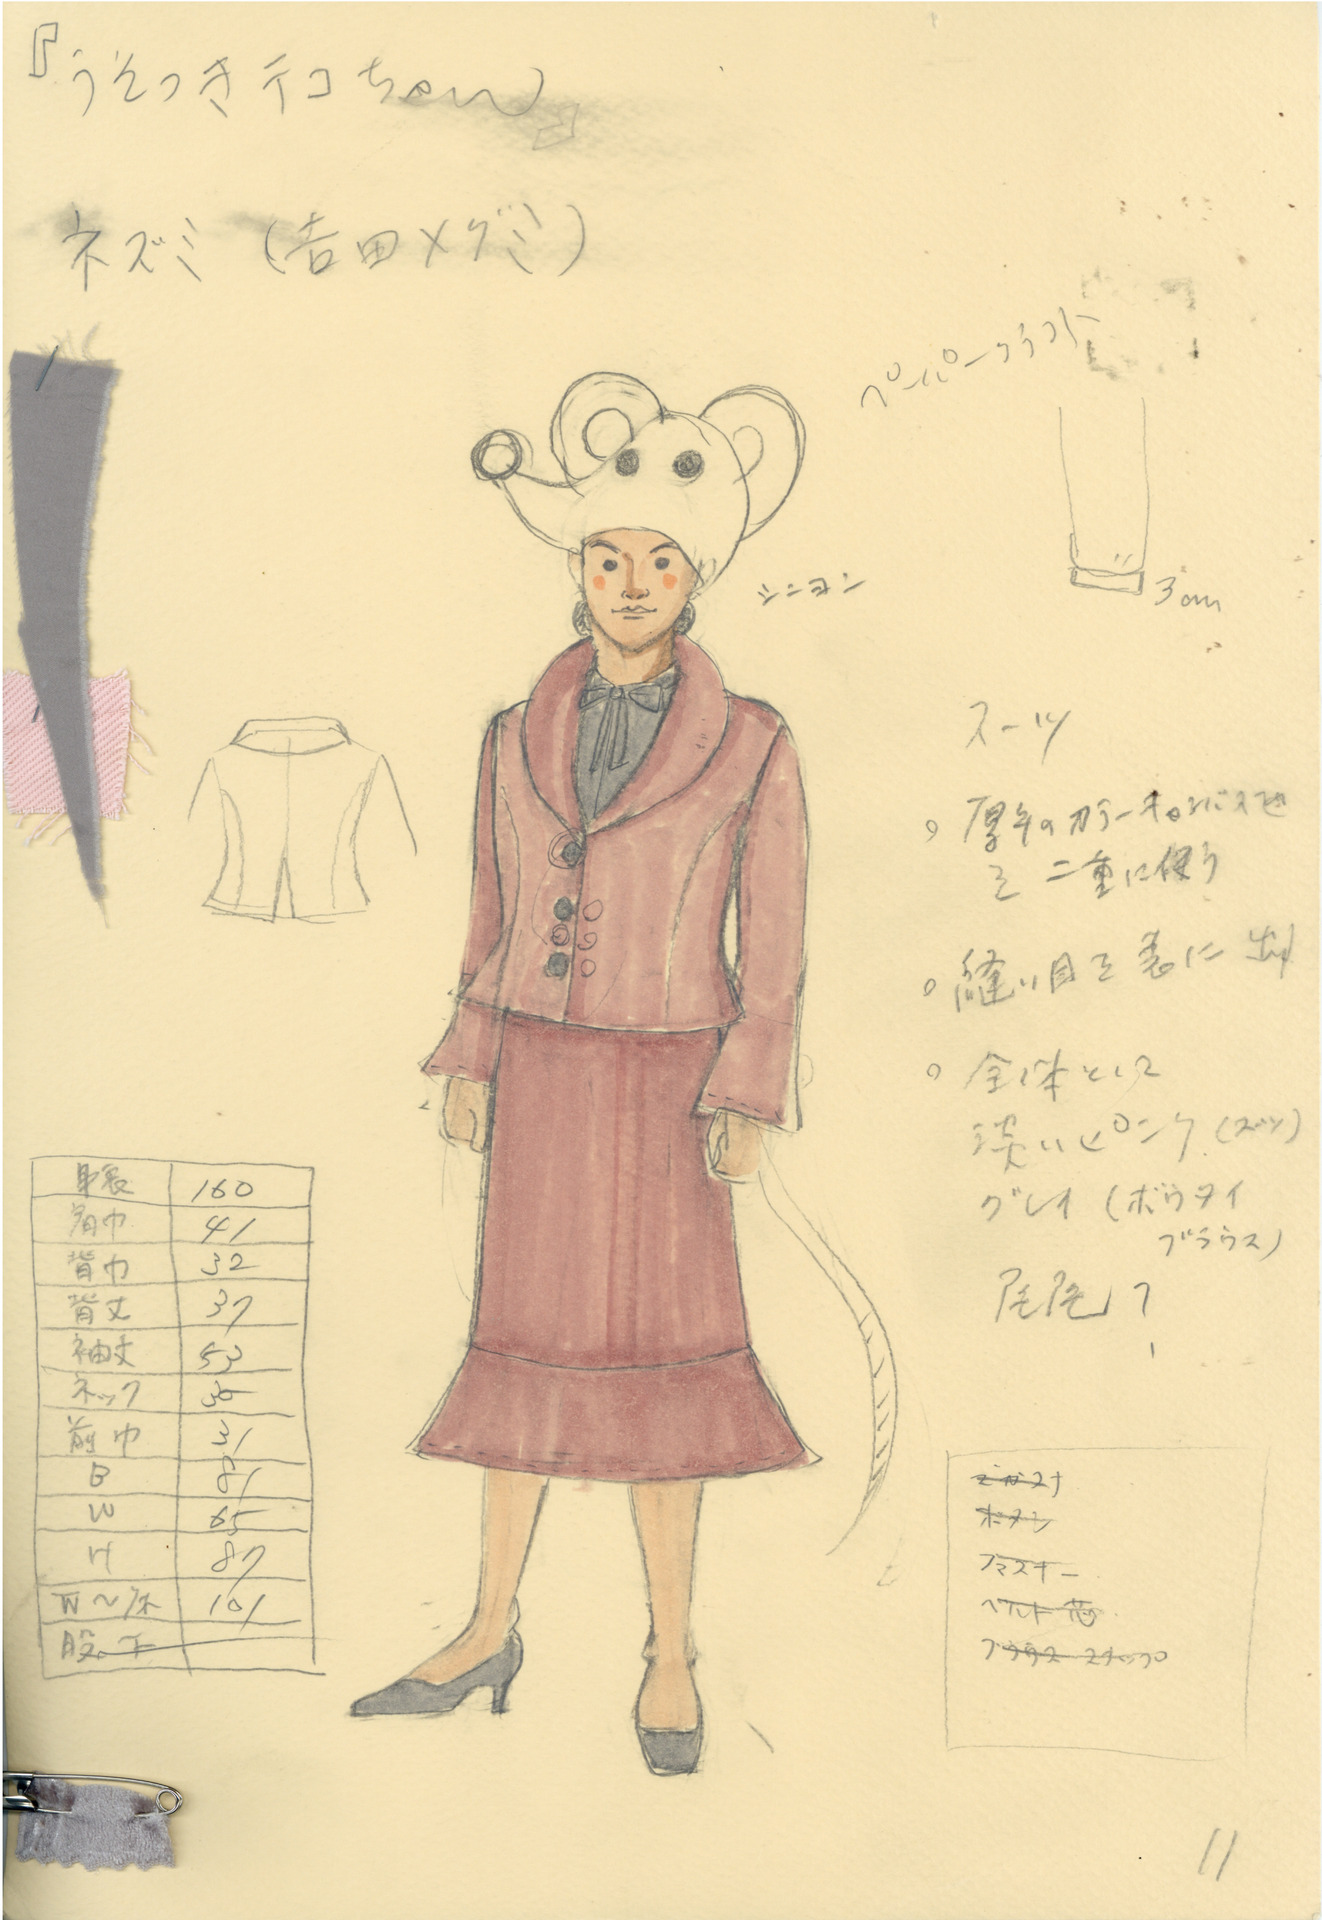 『うそつきテコちゃん』
ネズミ (吉田メグミ)
ペーパークラフト
3cm
シニヨン
スーツ
。厚手のカラーキャンバス地
を二重に使う
。縫い目を表に出す
。全体として
淡いピンク (スーツ)
グレイ (ボウタイ
ブラウス)
尻尾?
身長 160
肩巾 41
背巾 32
背丈 37
袖丈 53
ネック 36
前巾 31
B 81
W 65
H 87
W〜床 101
股下
ボタン
ファスナー
ベルト芯
ブラウス スナップ
11